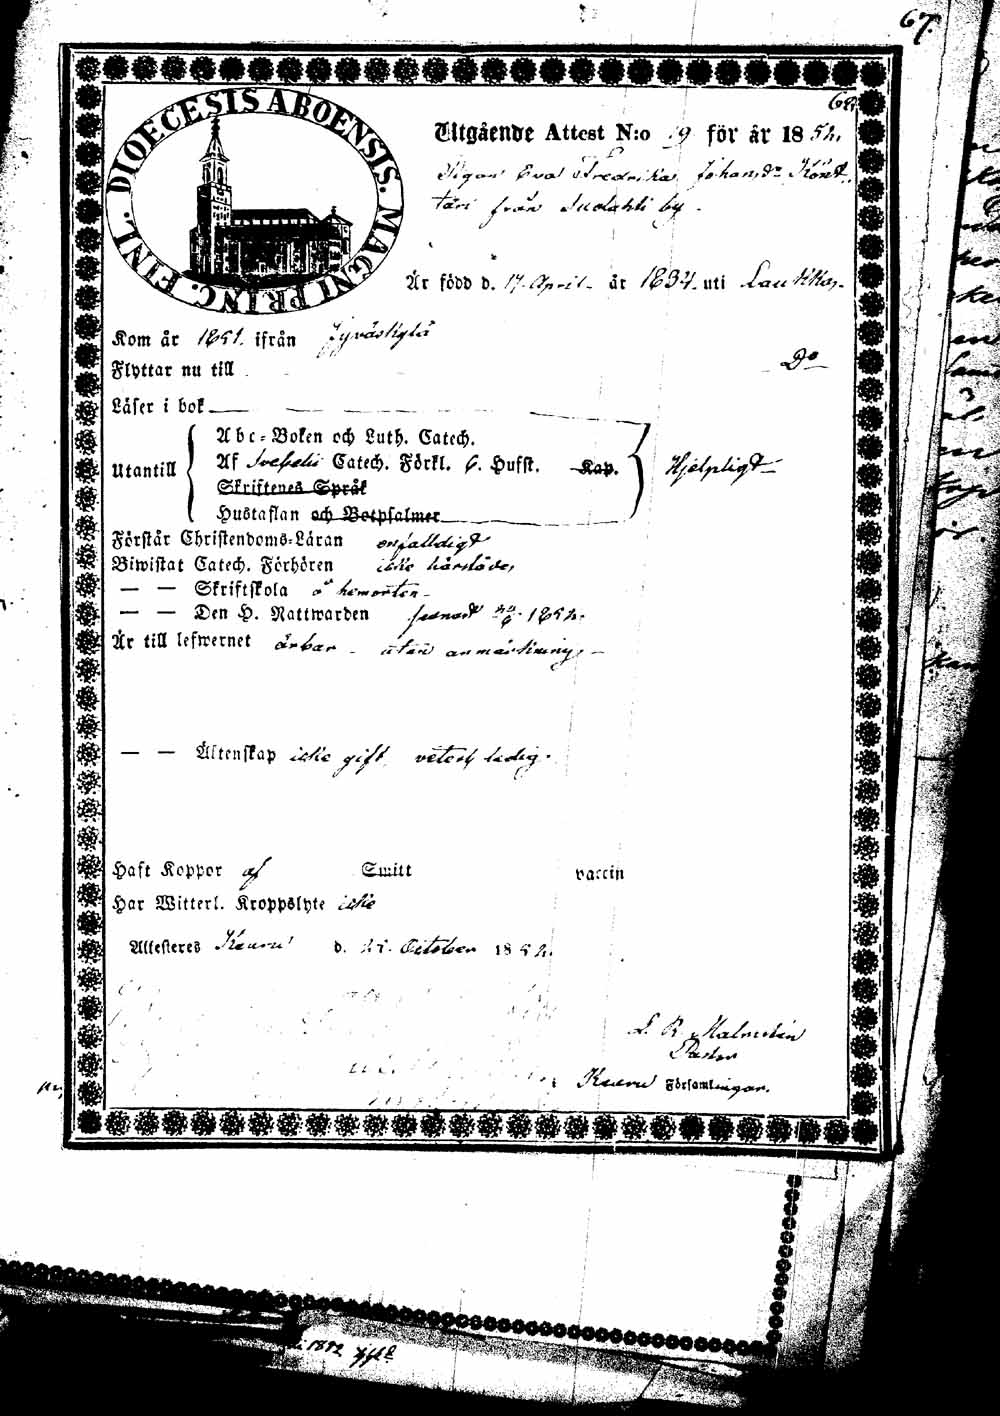 67.
68.
DIOECESIS ABOENSIS. MAGNI PRINC. FINL.
Utgående Attest N:o 19 för år 1852.
Pigan Eva Fredrika Johansdr
täri från by.
Är född d. 17 April år 1834 uti Laukkas.
Kom år 1851. ifrån Jyväskylä
Flyttar nu till Do
Läser i bok
Utantill
Abc-Boken och Luth. Catech.
Af Svebelii Catech. Förkl. 6. Hufst. Kap.
Skriftenes Språk
Hustaflan och Botpsalmer
Hjelpligt
Förstår Christendoms-Läran enfalldigt
Biwistat Catech. Förhören icke härstädes
— — Skriftskola å hemorten
— — Den H. Nattwarden senast 1852.
Är till lefwernet ärbar utan anmärkning
— — Äktenskap icke gift, veterl. ledig.
Haft Koppor af Smitt vaccin
Har Witterl. Kroppslyte icke
Attesteres Keuru d. October 1852.
L. R. Malmstén
Pastor
Keuru Församlingar.